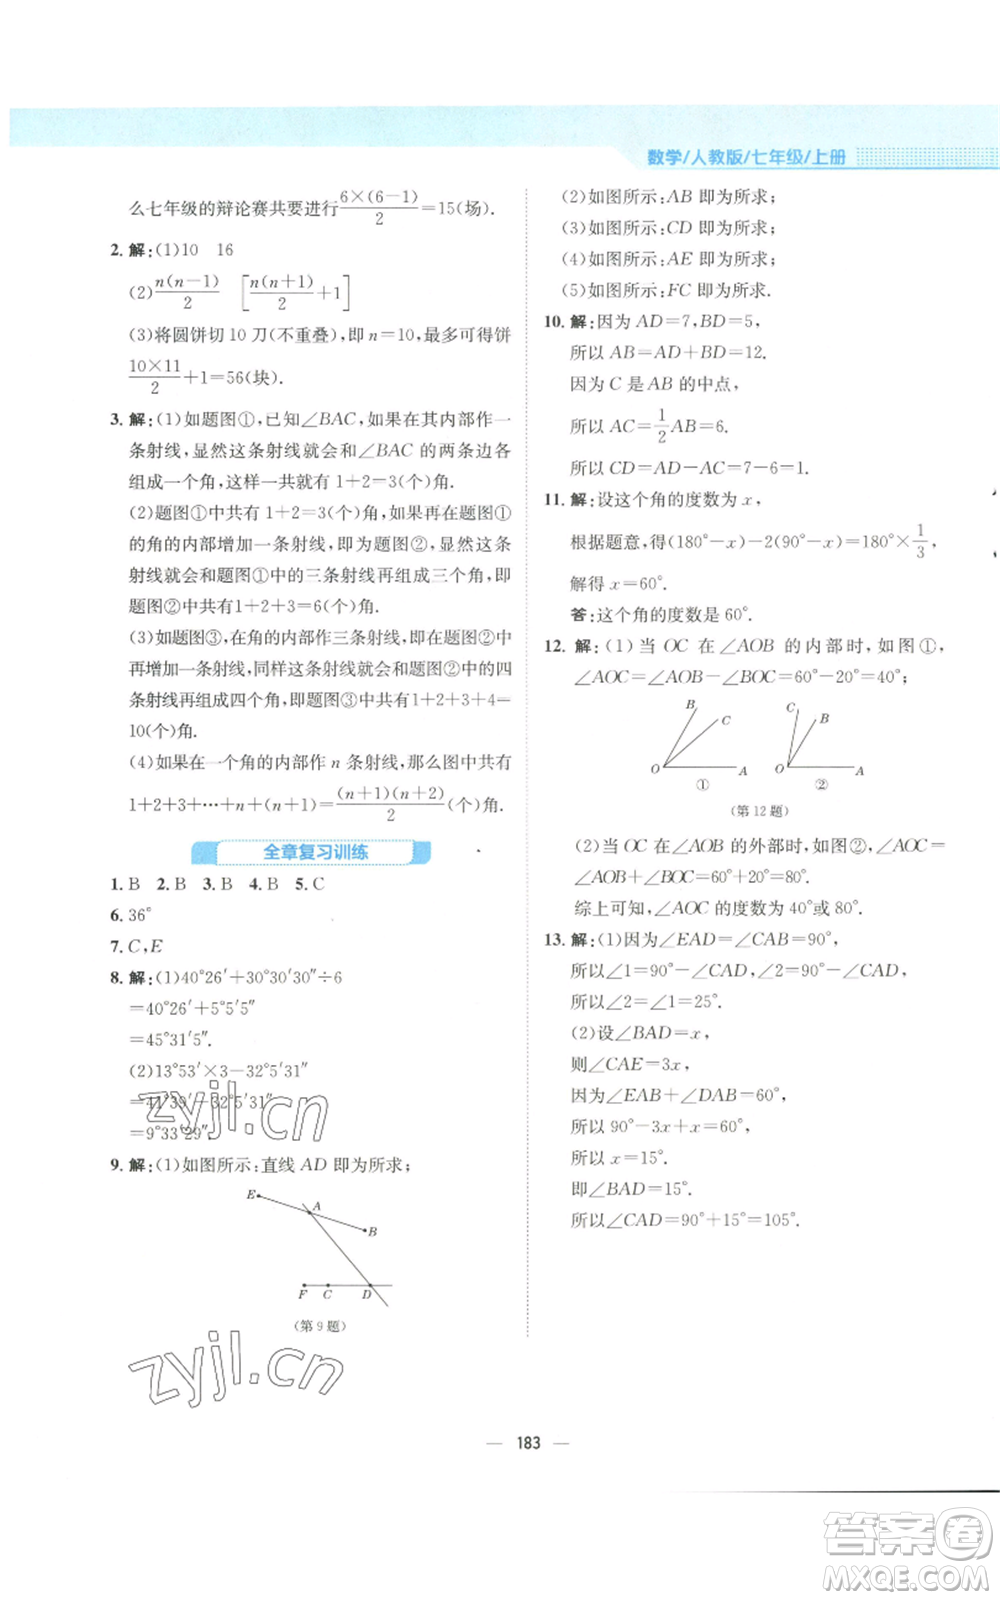 数学/人教版/七年级/上册
么七年级的辩论赛共要进行 6×(6−1)/2=15(场).
2. 解:(1)10　16
(2) n(n−1)/2　[n(n+1)/2+1]
(3)将圆饼切 10 刀(不重叠),即 n=10,最多可得饼
10×11/2+1=56(块).
3. 解:(1)如题图①,已知∠BAC,如果在其内部作一
条射线,显然这条射线就会和∠BAC 的两条边各
组成一个角,这样一共就有 1+2=3(个)角.
(2)题图①中共有 1+2=3(个)角,如果再在题图①
的角的内部增加一条射线,即为题图②,显然这条
射线就会和图①中的三条射线再组成三个角,即
题图②中共有1+2+3=6(个)角.
(3)如题图③,在角的内部作三条射线,即在题图②
中增加一条射线,同样这条射线会和图②中的四
条射线再组成四个角,即题图③中共有 1+2+3+4=
10(个)角.
(4)如果在一个角的内部作 n 条射线,那么图中共有
1+2+3+…+n+(n+1)=(n+1)(n+2)/2(个)角.
全章复习训练
1. B　2. B　3. B　4. B　5. C
6. 36°
7. C,E
8. 解:(1)40°26′+30°30′30″÷6
=40°26′+5°5′5″
=45°31′5″.
(2)13°53′×3−32°5′31″
=41°39′−32°5′31″
=9°33′29″.
9. 解:(1)如图所示:直线 AD 即为所求;
E A B
F C D
(第 9 题)
(2)如图所示:AB 即为所求;
(3)如图所示:CD 即为所求;
(4)如图所示:AE 即为所求;
(5)如图所示:FC 即为所求.
10. 解:因为 AD=7,BD=5,
所以 AB=AD+BD=12.
因为 C 是 AB 的中点,
所以 AC=1/2AB=6.
所以 CD=AD−AC=7−6=1.
11. 解:设这个角的度数为 x,
根据题意,得(180°−x)−2(90°−x)=180°×1/3,
解得 x=60°.
答:这个角的度数是 60°.
12. 解:(1)当 OC 在∠AOB 的内部时,如图①,
∠AOC=∠AOB−∠BOC=60°−20°=40°;
B C O A ①
C B O A ②
(第 12 题)
(2)当 OC 在∠AOB 的外部时,如图②,∠AOC=
∠AOB+∠BOC=60°+20°=80°.
综上可知,∠AOC 的度数为 40°或 80°.
13. 解:(1)因为∠EAD=∠CAB=90°,
所以∠1=90°−∠CAD,∠2=90°−∠CAD,
所以∠2=∠1=25°.
(2)设∠BAD=x,
则∠CAE=3x,
因为∠EAB+∠DAB=60°,
所以 90°−3x+x=60°,
所以 x=15°.
即∠BAD=15°.
所以∠CAD=90°+15°=105°.
zyjl.cn
zyjl.cn
— 183 —
答案卷
MXQE.COM